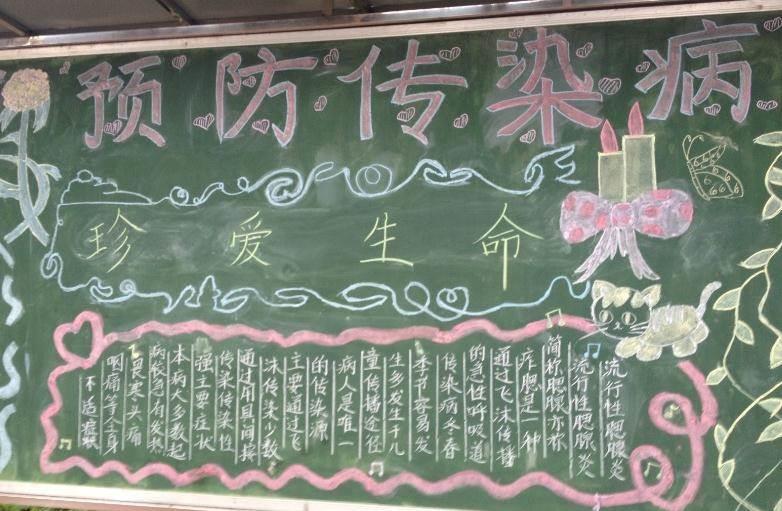 预防传染病
珍爱生命
流行性腮腺炎
流行性腮腺炎
简称腮腺炎亦称
痄腮是一种
通过飞沫传播
的急性呼吸道
传染病冬春
季节容易发
生多发生于儿
童传播途径
病人是唯一
的传染源
主要通过飞
沫传染少数
通过用具间接
传染传染性
强主要症状
本病大多数起
病较急有发热
畏寒头痛
咽痛等全身
不适症状